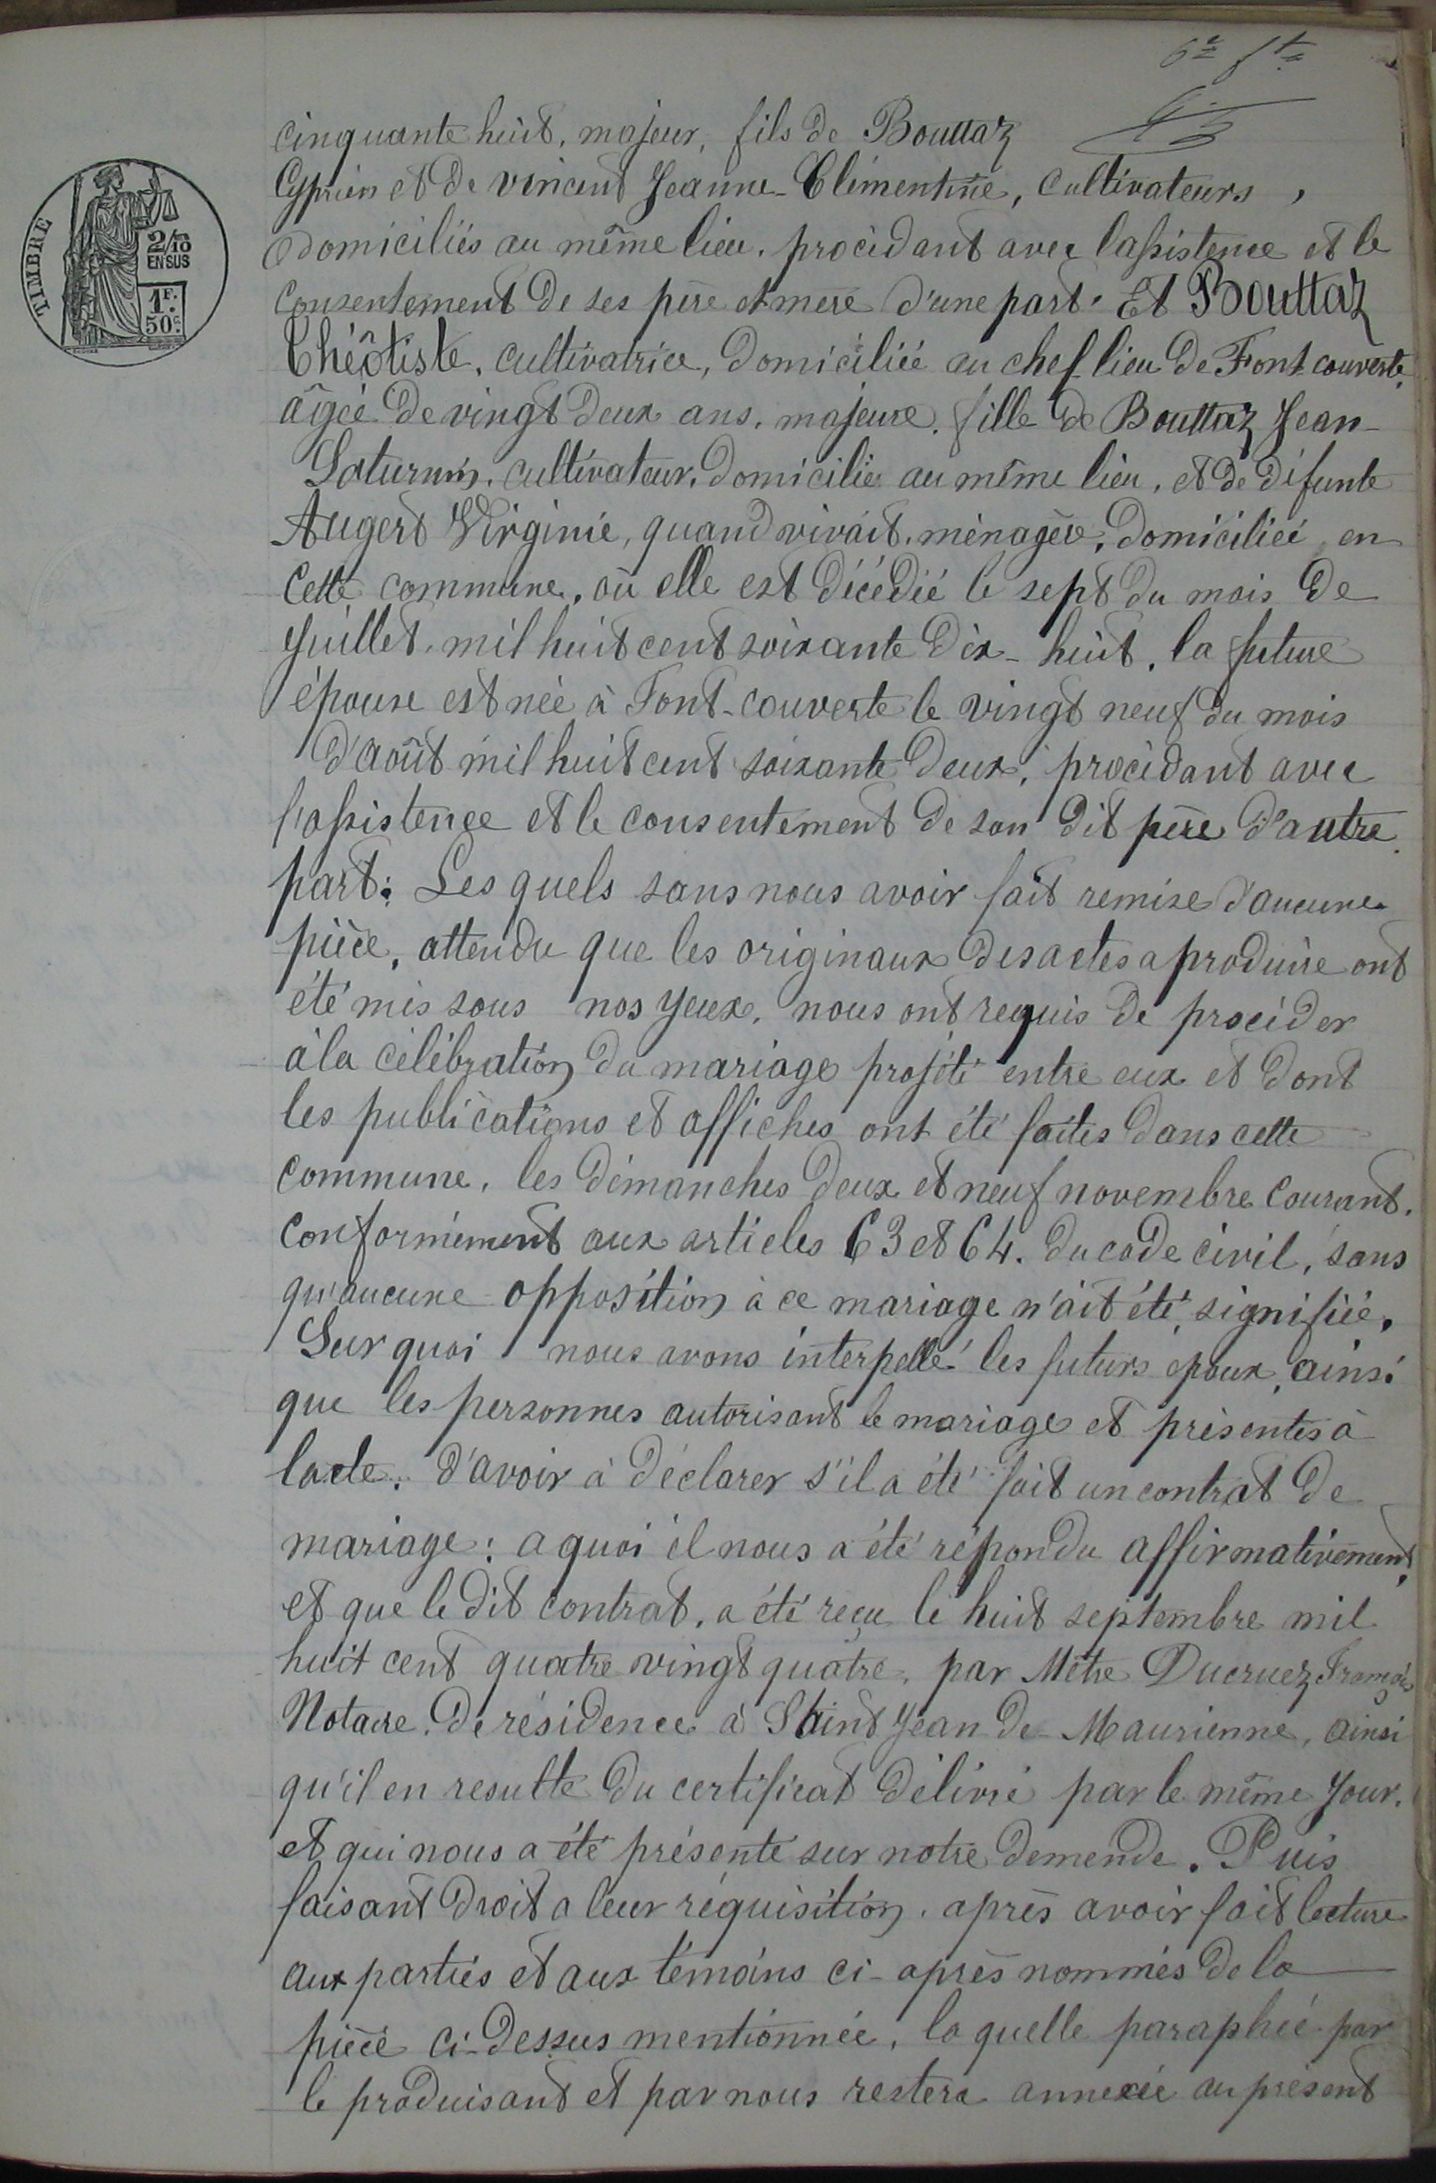 6e ft
cinquante huit, majeur, fils de Bouttaz
Cyprien et de vincent Jeanne-Clémentine, Cultivateurs,
domiciliés au même lieu, procédant avec l'assistence et le
consentement de ses père et mère d'une part. Et Bouttaz
Théotiste, cultivatrice, domiciliée au chef lieu de Font couverte,
âgée de vingt deux ans, majeure, fille de Bouttaz Jean-
Saturnin, cultivateur, domicilié au même lieu, et de défunte
Augert Virginie, quand vivait, ménagère, domiciliée en
Cette commune, où elle est décédée le sept du mois de
Juillet, mil huit cent soixante dix-huit, la future
épouse est née à Font-couverte le vingt neuf du mois
d'août mil huit cent soixante deux, procédant avec
l'assistence et le consentement de son dit père d'autre
part: Les quels sans nous avoir fait remise d'aucune
pièce, attendu que les originaux des actes a produire ont
été mis sous nos yeux, nous ont requis de procéder
à la célébration du mariage projété entre eux et dont
les publications et affiches ont été faites dans cette
commune, les dimanches deux et neuf novembre courant,
conformément aux articles 63 et 64. du code civil, sans
qu'aucune opposition à ce mariage n'ait été signifiée.
Sur quoi nous avons interpellé les futurs époux, ainsi
que les personnes autorisant le mariage et présentes à
lacte, d'avoir à déclarer s'il a été fait un contrat de
mariage: a quoi il nous a été répondu affirmativement,
et que le dit contrat, a été reçu le huit septembre mil
huit cent quatre vingt quatre, par Mètre Ducruez François
Notaire, de résidence à Saint Jean de Maurienne, ainsi
qu'il en resulte du certificat délivré par le même jour,
et qui nous a été présenté sur notre demende. Puis
faisant droit a leur réquisition, après avoir fait lecture
aux parties et aux témoins ci-après nommés de la
pièce ci-dessus mentionnée, la quelle paraphée par
le produisant et par nous restera annexée au présent
TIMBRE
2/10
EN SUS
1F.
50c.